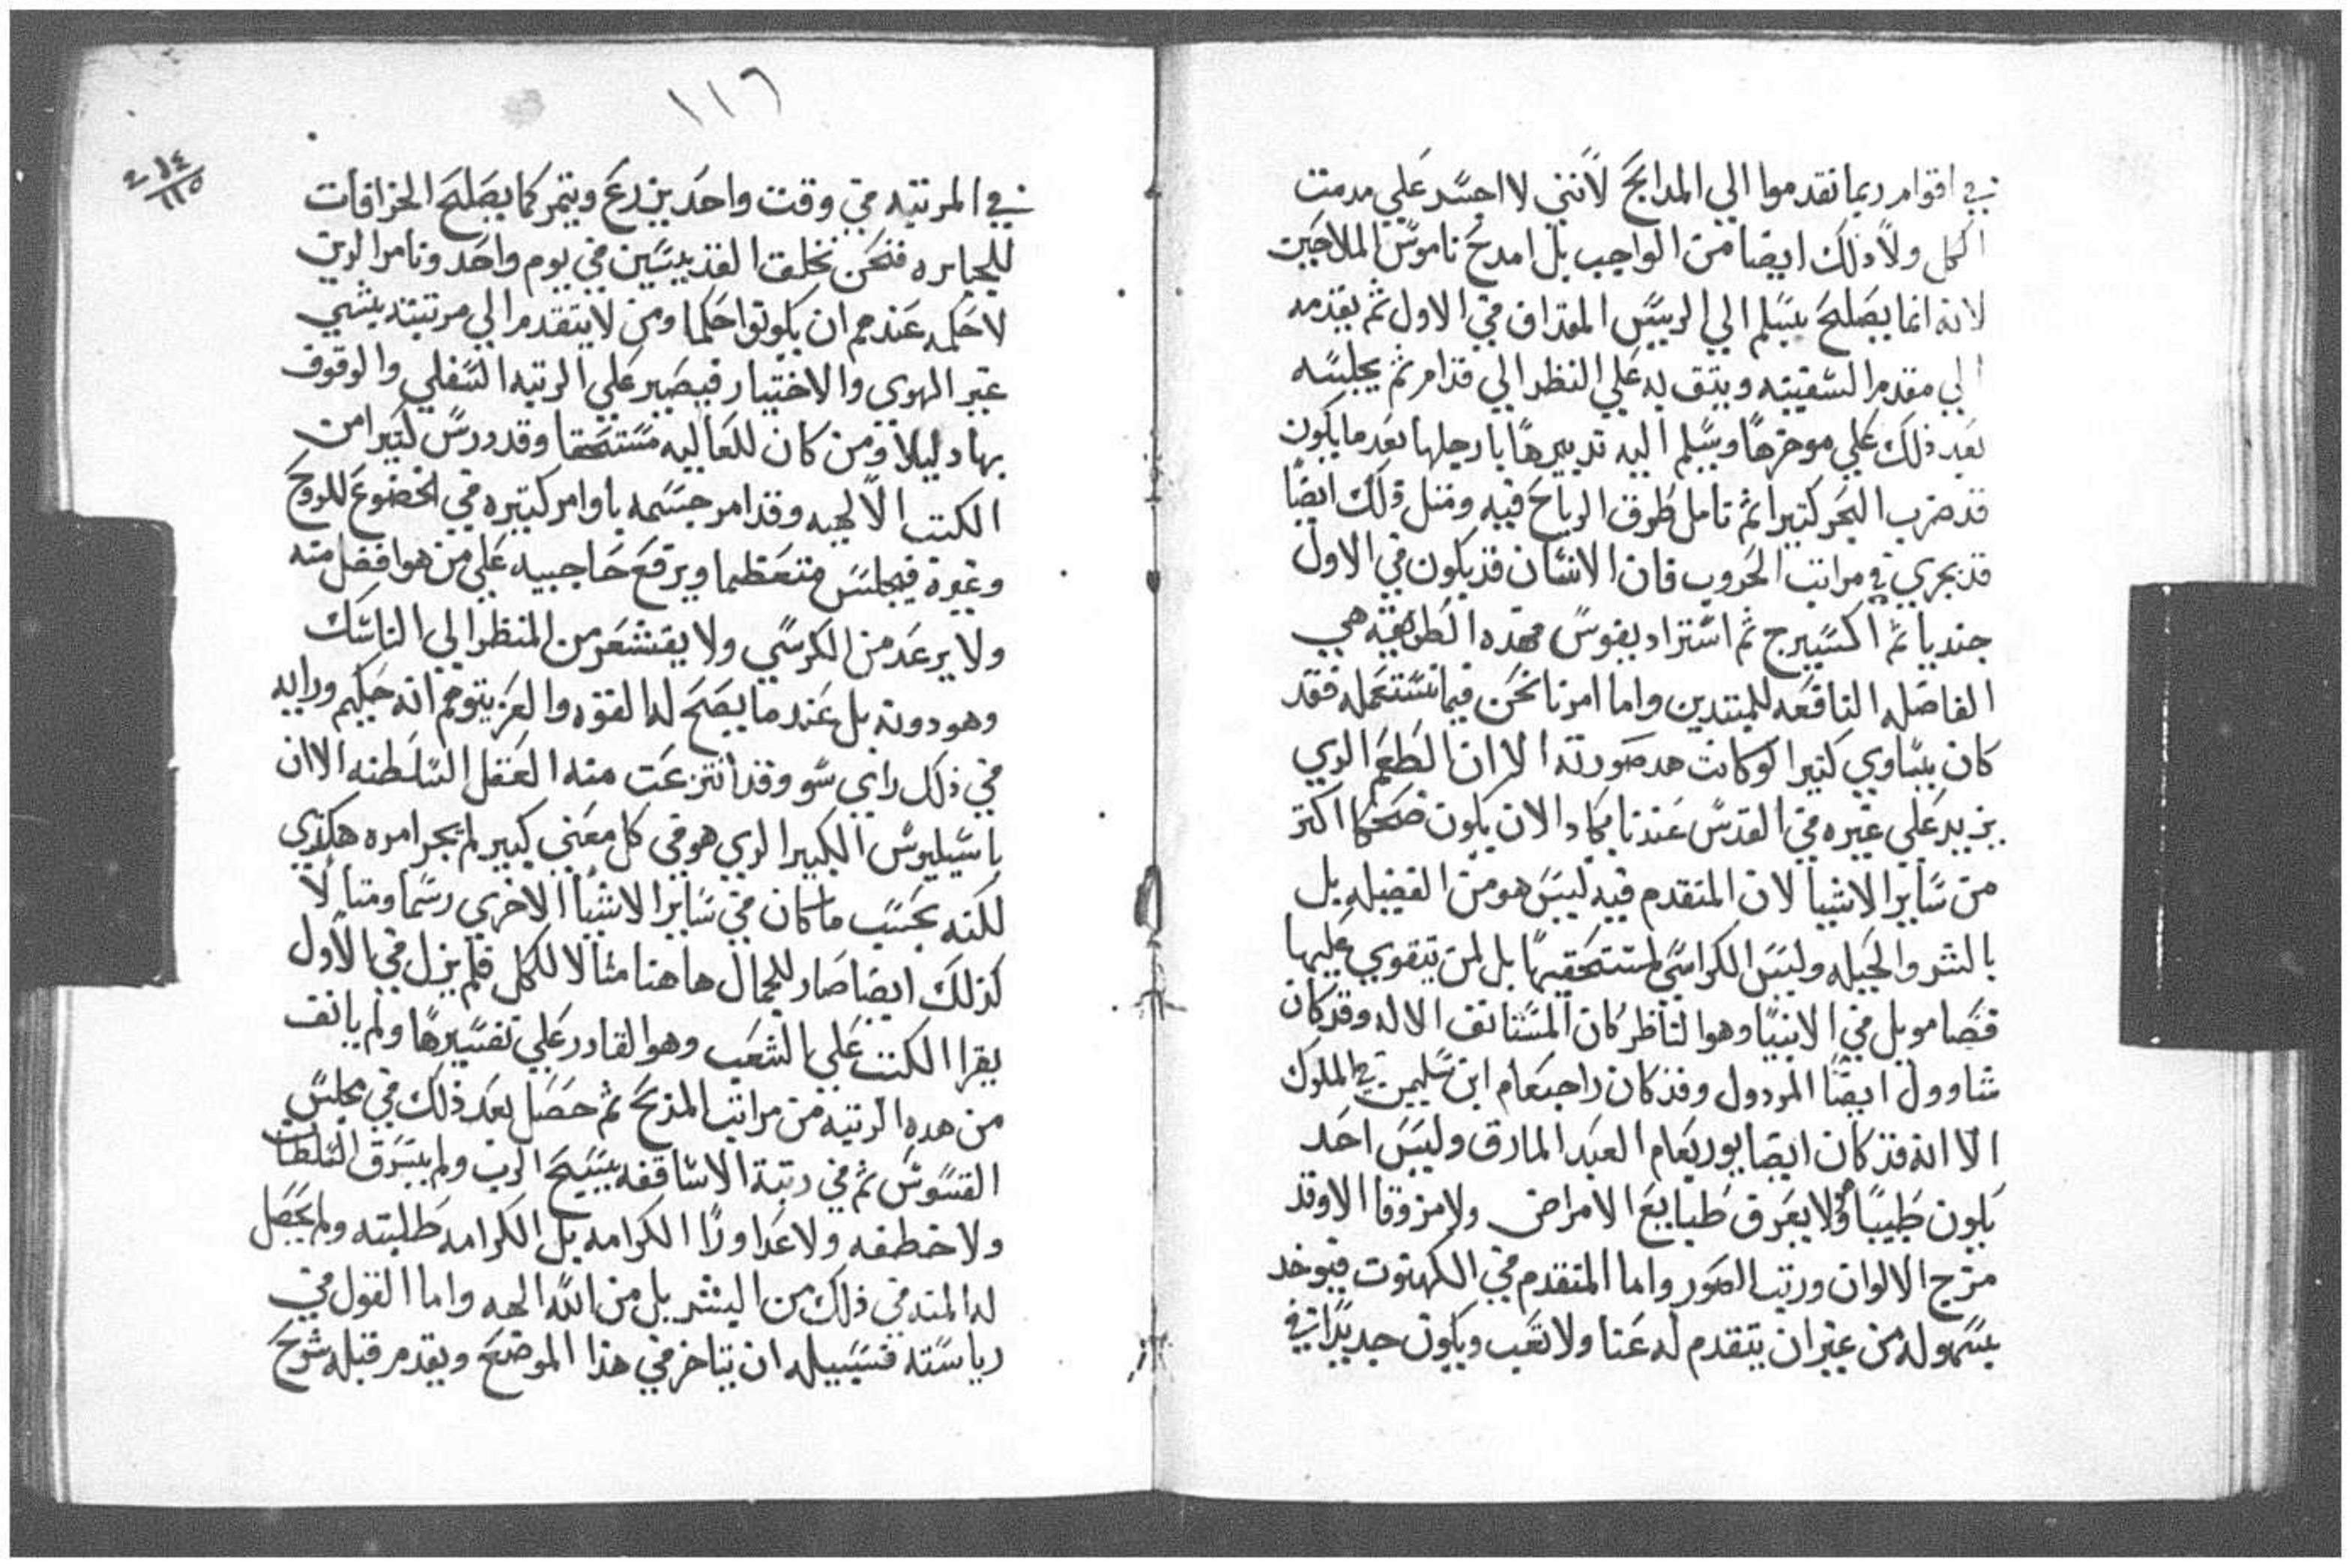 في اقوام ربما تقدموا الي المدابح لانني لا احسد علي مدمت
الكل ولا ذلك ايضا من الواجب بل امدح ناموس الملاحين
لانه انما يصلح يسلم الي الرييس المقداف في الاول ثم يقدمه
الي مقدم السفينه ويتق به علي النظر الي قدام ثم يجلسه
بعد ذلك علي موخرها ويسلم اليه تدبيرها بارجلها بعد ما يكون
قد ضرب البحر كتيرا ثم تامل طرق الرياح فيه ومتل ذلك ايضا
قد يجري في مراتب الحروب فان الانسان قد يكون في الاول
جنديا ثم اكسيرج ثم استراديغوس فهده الطريقه هي
الفاضله النافعه للمبتدين واما امرنا نحن فيما نستعمله فقد
كان يساوي كتيرا لو كانت هده صورته الا ان الطعم الدي
يزيد علي غيره في القدس عندنا يكاد الان يكون ضحكا اكتر
من ساير الاشيا لان المتقدم فيه ليس هو من الفضيله بل
بالشر والحيله وليس الكراسي لمستحقيها بل لمن يتقوي عليها
فصامويل في الانبيا وهو الناظر كان المستانف الاله وقد كان
شاوول ايضا المردول وقد كان راحبعام ابن سليمن في الملوك
الا انه قد كان ايضا يوربعام العبد المارق وليس احد
يكون طبيبا ولا يعرف طبايع الامراض ولا مزوقا الا وقد
مزج الالوان ورتب الصور واما المتقدم في الكهنوت فيوخد
بسهوله من غير ان يتقدم له عنا ولا تعب ويكون جديدا في
١١٦
٤ ١٤
١١٥
في المرتبه في وقت واحد يزرع ويتمر كما يصلح الخرافات
للجبابره فنحن نخلق القديسين في يوم واحد ونامر الدين
لا حكمه عندهم ان يكونوا حكما ومن لا يتقدم الي مرتبته بشي
غير الهوي والاختيار فيصير علي الرتبه السفلي والوقوف
بها دليلا ومن كان للعاليه مستحقا وقد درس كتيرا من
الكتب الالهيه وقد امر جسمه باوامر كتيره في الخضوع للروح
وغيره فيجلس متعظما ويرفع حاجبيه علي من هو افضل منه
ولا يرعد من الكرسي ولا يقشعر من المنظر الي الناسك
وهو دونه بل عند ما يصح له القوه والعز يتوهم انه حكيم ورايه
في ذلك راي سو وقد انتزعت منه العقل السلطنه الا ان
باسيليوس الكبير الدي هو في كل معني كبير لم يجر امره هكدي
لكنه بحسب ما كان في ساير الاشيا الاخري رسما ومتالا
كذلك ايضا صار للجمال هاهنا مثالا للكل فلم يزل في الاول
يقرا الكتب علي الشعب وهو القادر علي تفسيرها ولم يانف
من هده الرتبه من مراتب المذبح ثم حصل بعد ذلك في مجلس
القسوس ثم في رتبة الاساقفه يسبح الرب ولم يسرق السلطان
ولا خطفه ولا عدا ورا الكرامه بل الكرامه طلبته ولم يحصل
له المنه في ذلك من البشر بل من الله الهه واما القول في
رياسته فسبيله ان يتاخر في هذا الموضع ويقدم قبله شرح